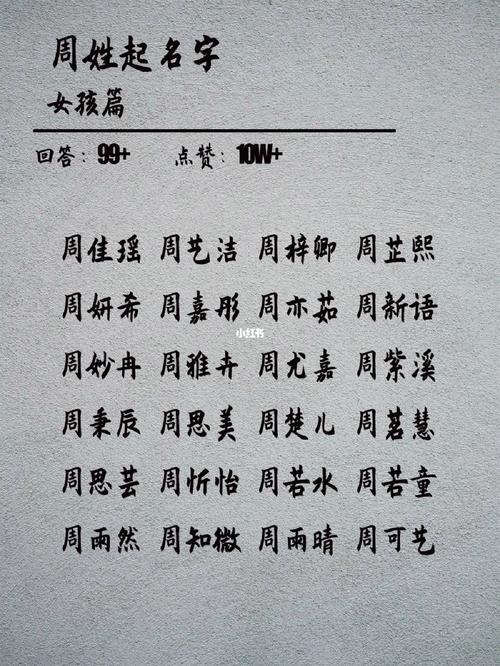 周姓起名字
女孩篇
回答：99+ 点赞：10W+
周佳瑶 周艺洁 周梓卿 周芷熙
周妍希 周嘉彤 周亦茹 周新语
小红书
周妙冉 周雅卉 周尤嘉 周紫溪
周秉辰 周思美 周楚儿 周茗慧
周思芸 周忻怡 周若水 周若童
周雨然 周知微 周雨晴 周可艺